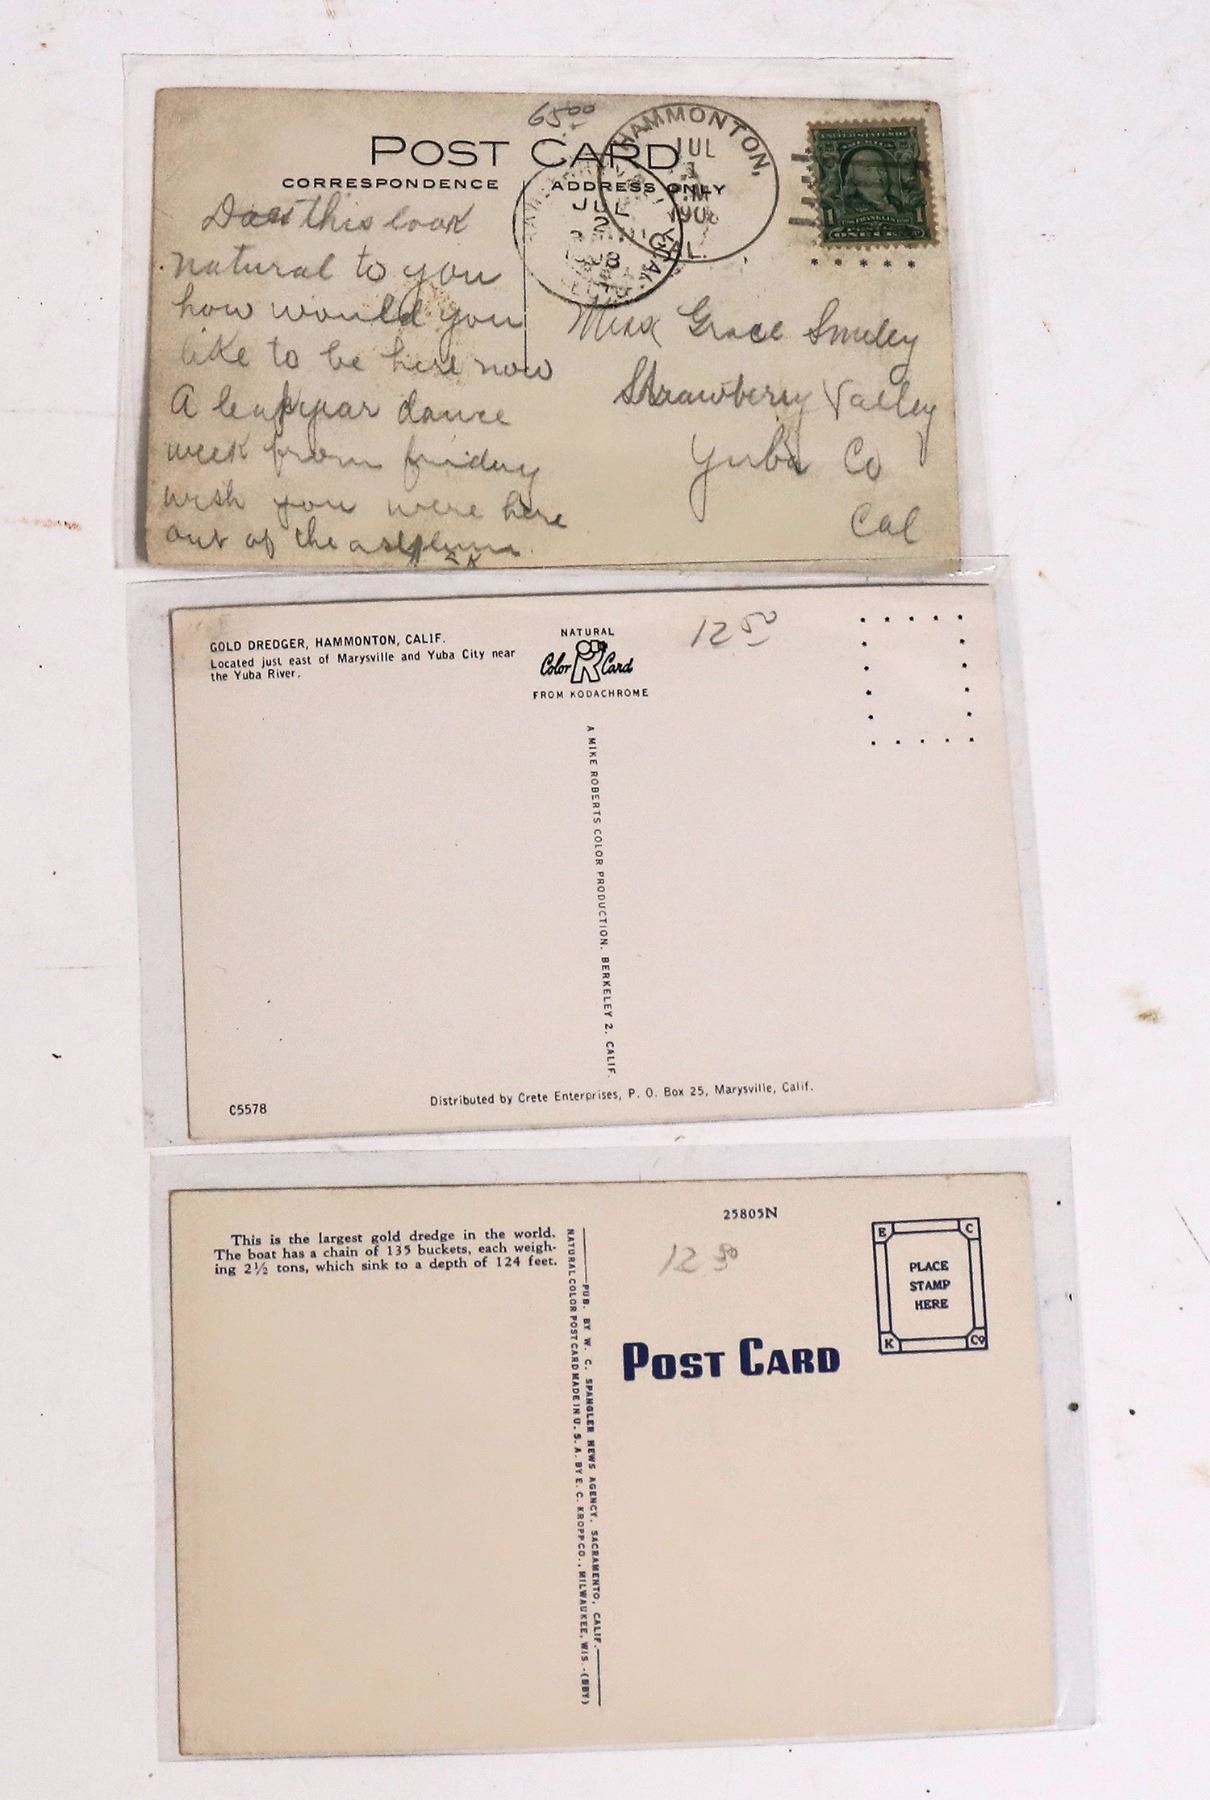 65 00
POST CARD
CORRESPONDENCE
ADDRESS ONLY
HAMMONTON,
JUL
1
M
1908
CAL.
JUL
2
UNITED STATES OF
AMERICA
1 FRANKLIN 1
ONE
Does this look
natural to you
how would you
like to be here now
A leap year dance
week from friday
wish you were here
out of the
Miss Grace Smiley
Strawberry Valley
Yuba Co
Cal
GOLD DREDGER, HAMMONTON, CALIF.
Located just east of Marysville and Yuba City near
the Yuba River.
NATURAL
Color Card
FROM KODACHROME
12 50
A MIKE ROBERTS COLOR PRODUCTION, BERKELEY 2, CALIF.
C5578
Distributed by Crete Enterprises, P. O. Box 25, Marysville, Calif.
This is the largest gold dredge in the world.
The boat has a chain of 135 buckets, each weigh-
ing 2½ tons, which sink to a depth of 124 feet.
25805N
12 50
E C
PLACE
STAMP
HERE
K Co
POST CARD
PUB. BY W. C. SPANGLER NEWS AGENCY, SACRAMENTO, CALIF.
NATURAL COLOR POST CARD MADE IN U. S. A. BY E. C. KROPP CO., MILWAUKEE, WIS.-(BBY)